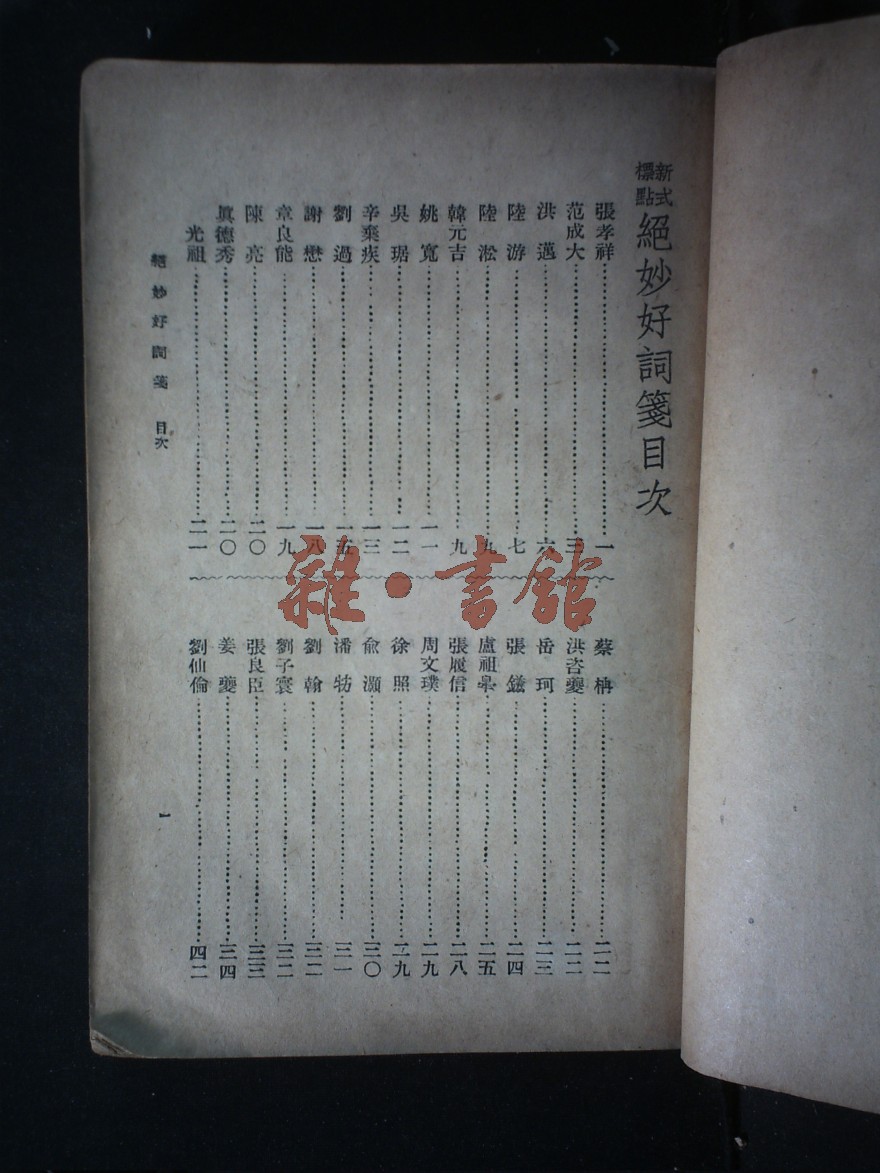 新式標點 絕妙好詞箋目次
張孝祥 一
范成大 三
洪邁 六
陸游 七
陸淞 九
韓元吉 九
姚寬 一一
吳琚 一二
辛棄疾 一三
劉過 一五
謝懋 一八
章良能 一九
陳亮 二〇
真德秀 二〇
光祖 二一
蔡柟 二二
洪咨夔 二二
岳珂 二三
張鎡 二四
盧祖皋 二五
張履信 二八
周文璞 二九
徐照 二九
俞灝 三〇
潘牥 三一
劉翰 三二
劉子寰 三二
張良臣 三三
姜夔 三四
劉仙倫 四二
絕妙好詞箋 目次
一
雜·書館